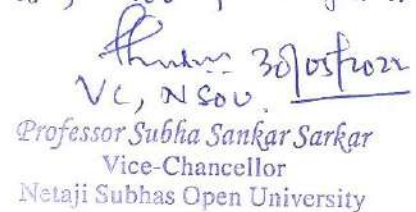 30/05/2022
VC, NSOU.
Professor Subha Sankar Sarkar
Vice-Chancellor
Netaji Subhas Open University